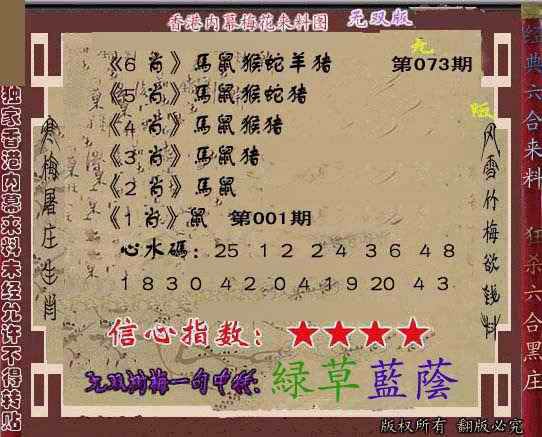 香港内幕梅花来料图 无双版
《6 肖》馬鼠猴蛇羊猪 第073期
《5 肖》馬鼠猴蛇猪
《4 肖》馬鼠猴猪
《3 肖》馬鼠猪
《2 肖》馬鼠
《1 肖》鼠 第001期
心水碼：25 12 24 36 48
18 30 42 04 19 20 43
信心指数：★★★★
緑草藍蔭
无
版
独家香港内幕来料未经允许不得转贴
寒梅屠庄生肖
风雪竹梅欲
经典六合来料
狂杀六合黑庄
版权所有 翻版必究